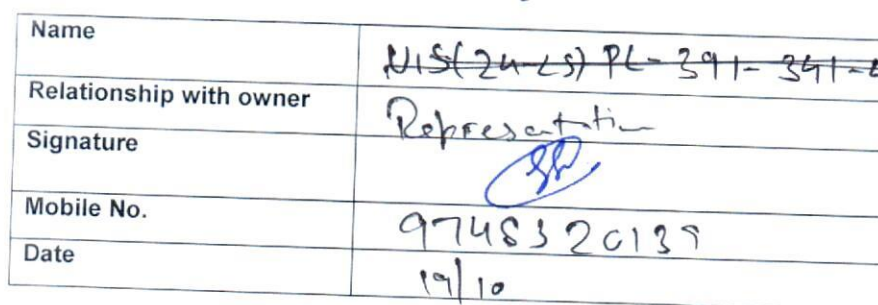 Name NIS(24-25) PL-391-341-
Relationship with owner Representation
Signature
Mobile No.
Date 19/10